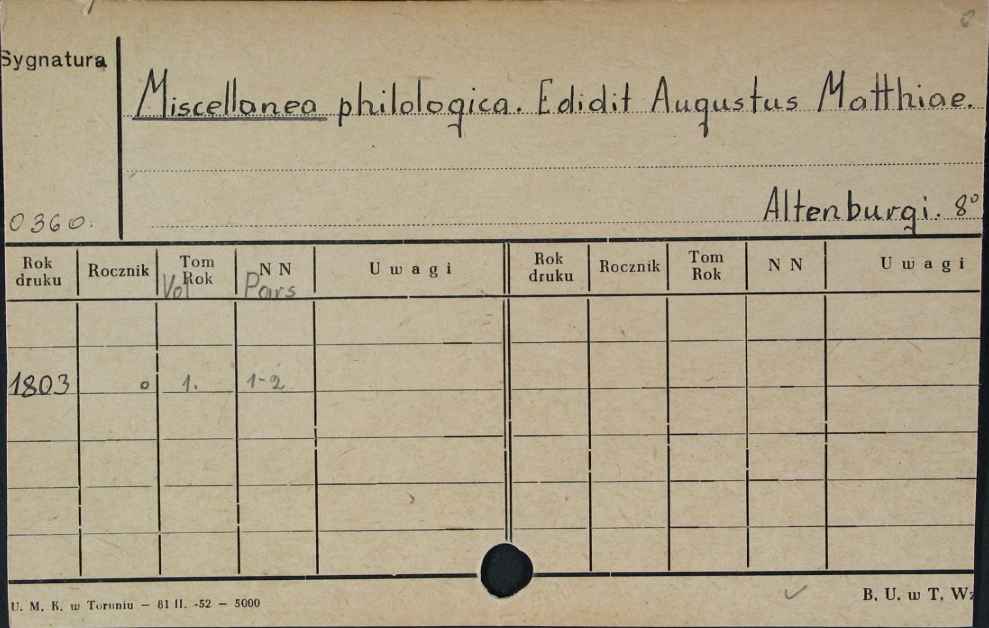 Sygnatura
Miscellanea philologica. Edidit Augustus Matthiae.
Altenburgi. 8°
0360.
Rok druku Rocznik Tom Rok NN Uwagi Rok druku Rocznik Tom Rok NN Uwagi
Vol Pars
1803 o 1. 1-2
U. M. K. w Toruniu — 81 II. -52 — 5000
B. U. w T. Wz